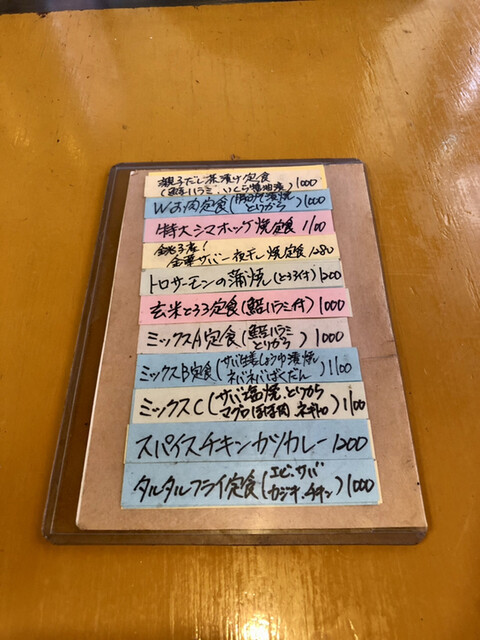 親子だし茶漬け定食
(鮭ハラミ、いくら醤油漬) 1000
Wお肉定食 (漬焼
とりから) 1000
特大シマホッケ焼定食 1100
銚子産!
金華サバ一夜干し焼定食 1280
トロサーモンの蒲焼 (とろろ付) 1200
玄米とろろ定食 (鮭ハラミ付) 1000
ミックスA定食 (鮭ハラミ
とりから) 1000
ミックスB定食 (サバ生姜しょうゆ漬焼
ネバネバばくだん) 1100
ミックスC (サバ塩焼、とりから
マグロほほ肉、ネギトロ) 1100
スパイスチキンカツカレー 1200
タルタルフライ定食 (エビ、サバ
カジキ、チキン) 1000